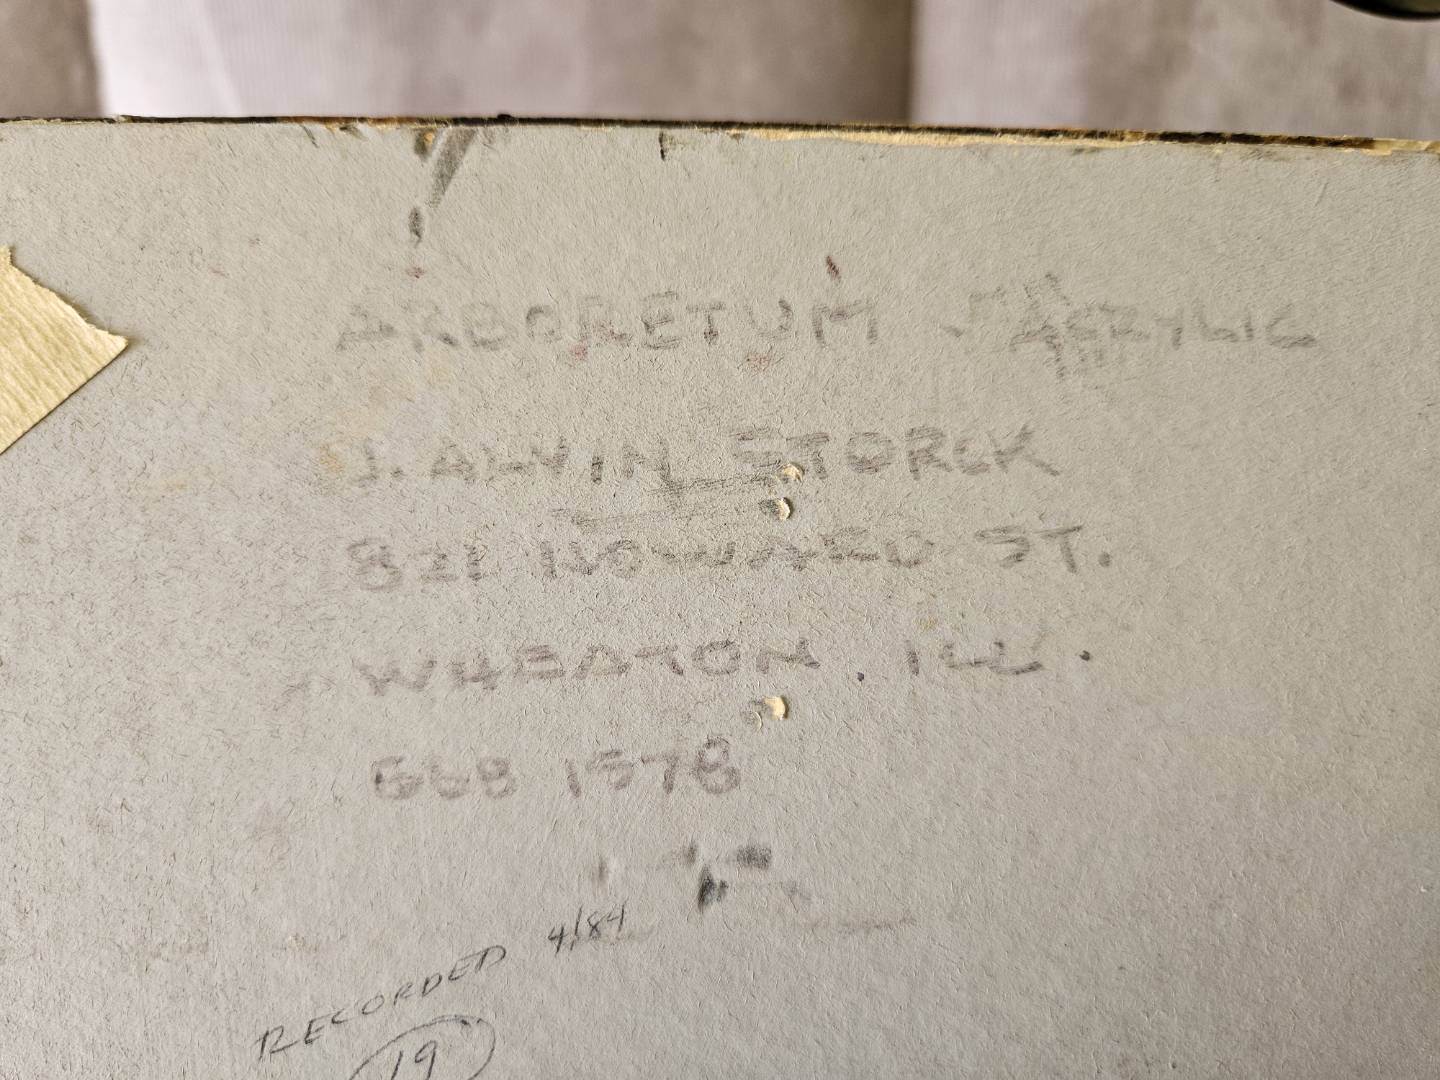 ARBORETUM - ACRYLIC
J. ALVIN STORCK
821 HOWARD ST.
WHEATON, ILL.
668 1578
RECORDED 4/84
19